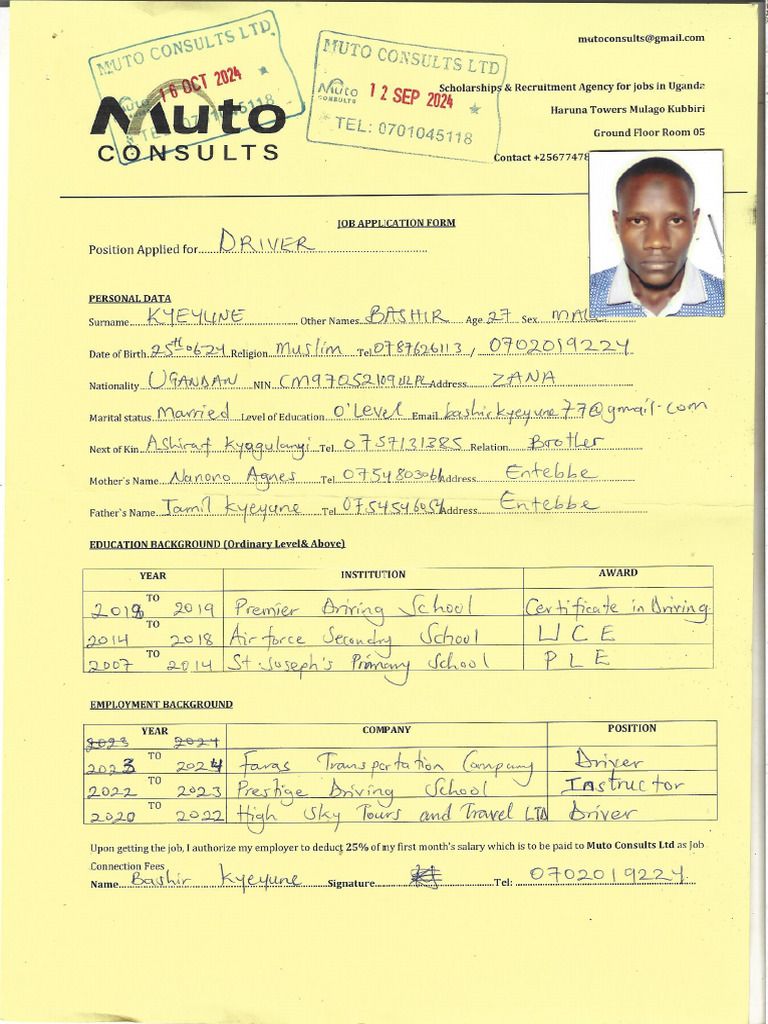 mutoconsults@gmail.com
MUTO CONSULTS LTD
16 OCT 2024
MUTO CONSULTS LTD
Muto CONSULTS
12 SEP 2024
TEL: 0701045118
Scholarships & Recruitment Agency for jobs in Uganda
Haruna Towers Mulago Kubbiri
Ground Floor Room 05
Contact +25677478
Muto
CONSULTS
JOB APPLICATION FORM
Position Applied for DRIVER
PERSONAL DATA
Surname KYEYUNE Other Names BASHIR Age 27 Sex MALE
Date of Birth Religion Muslim Tel 0787626113 / 0702019224
Nationality UGANDAN NIN Address ZANA
Marital status Married Level of Education O'Level Email bashirkyeyune77@gmail.com
Next of Kin Ashiraf Kyagulanyi Tel 0757131385 Relation Brother
Mother's Name Nanono Agnes Tel Address Entebbe
Father's Name Jamil Kyeyune Tel 0754546054 Address Entebbe
EDUCATION BACKGROUND (Ordinary Level& Above)
YEAR INSTITUTION AWARD
2018 TO 2019 Premier Driving School Certificate in Driving
2014 TO 2018 Airforce Secondry School UCE
2007 TO 2014 St. Joseph's Primary School PLE
EMPLOYMENT BACKGROUND
YEAR COMPANY POSITION
2023 2024
2023 TO 2024 Faras Transportation Company Driver
2022 TO 2023 Prestige Driving School Instructor
2020 TO 2022 High Sky Tours and Travel LTD Driver
Upon getting the job, I authorize my employer to deduct 25% of my first month's salary which is to be paid to Muto Consults Ltd as Job
Connection Fees
Name Bashir Kyeyune Signature Tel: 0702019224